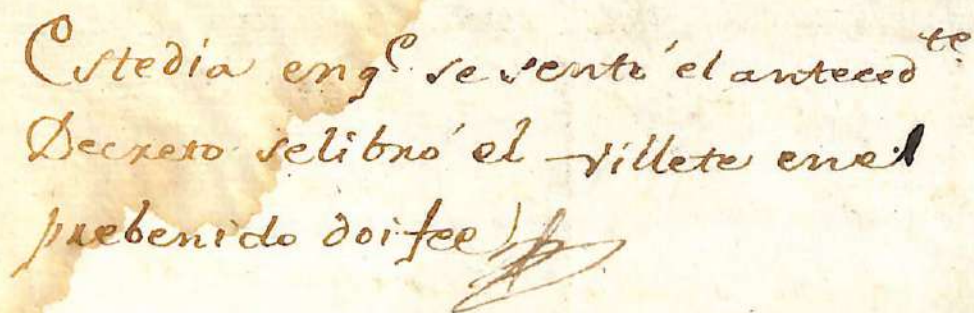 Estedia enq.e se sentó el anteced.te
Decreto selibró el villete enel
prebenido doi fee